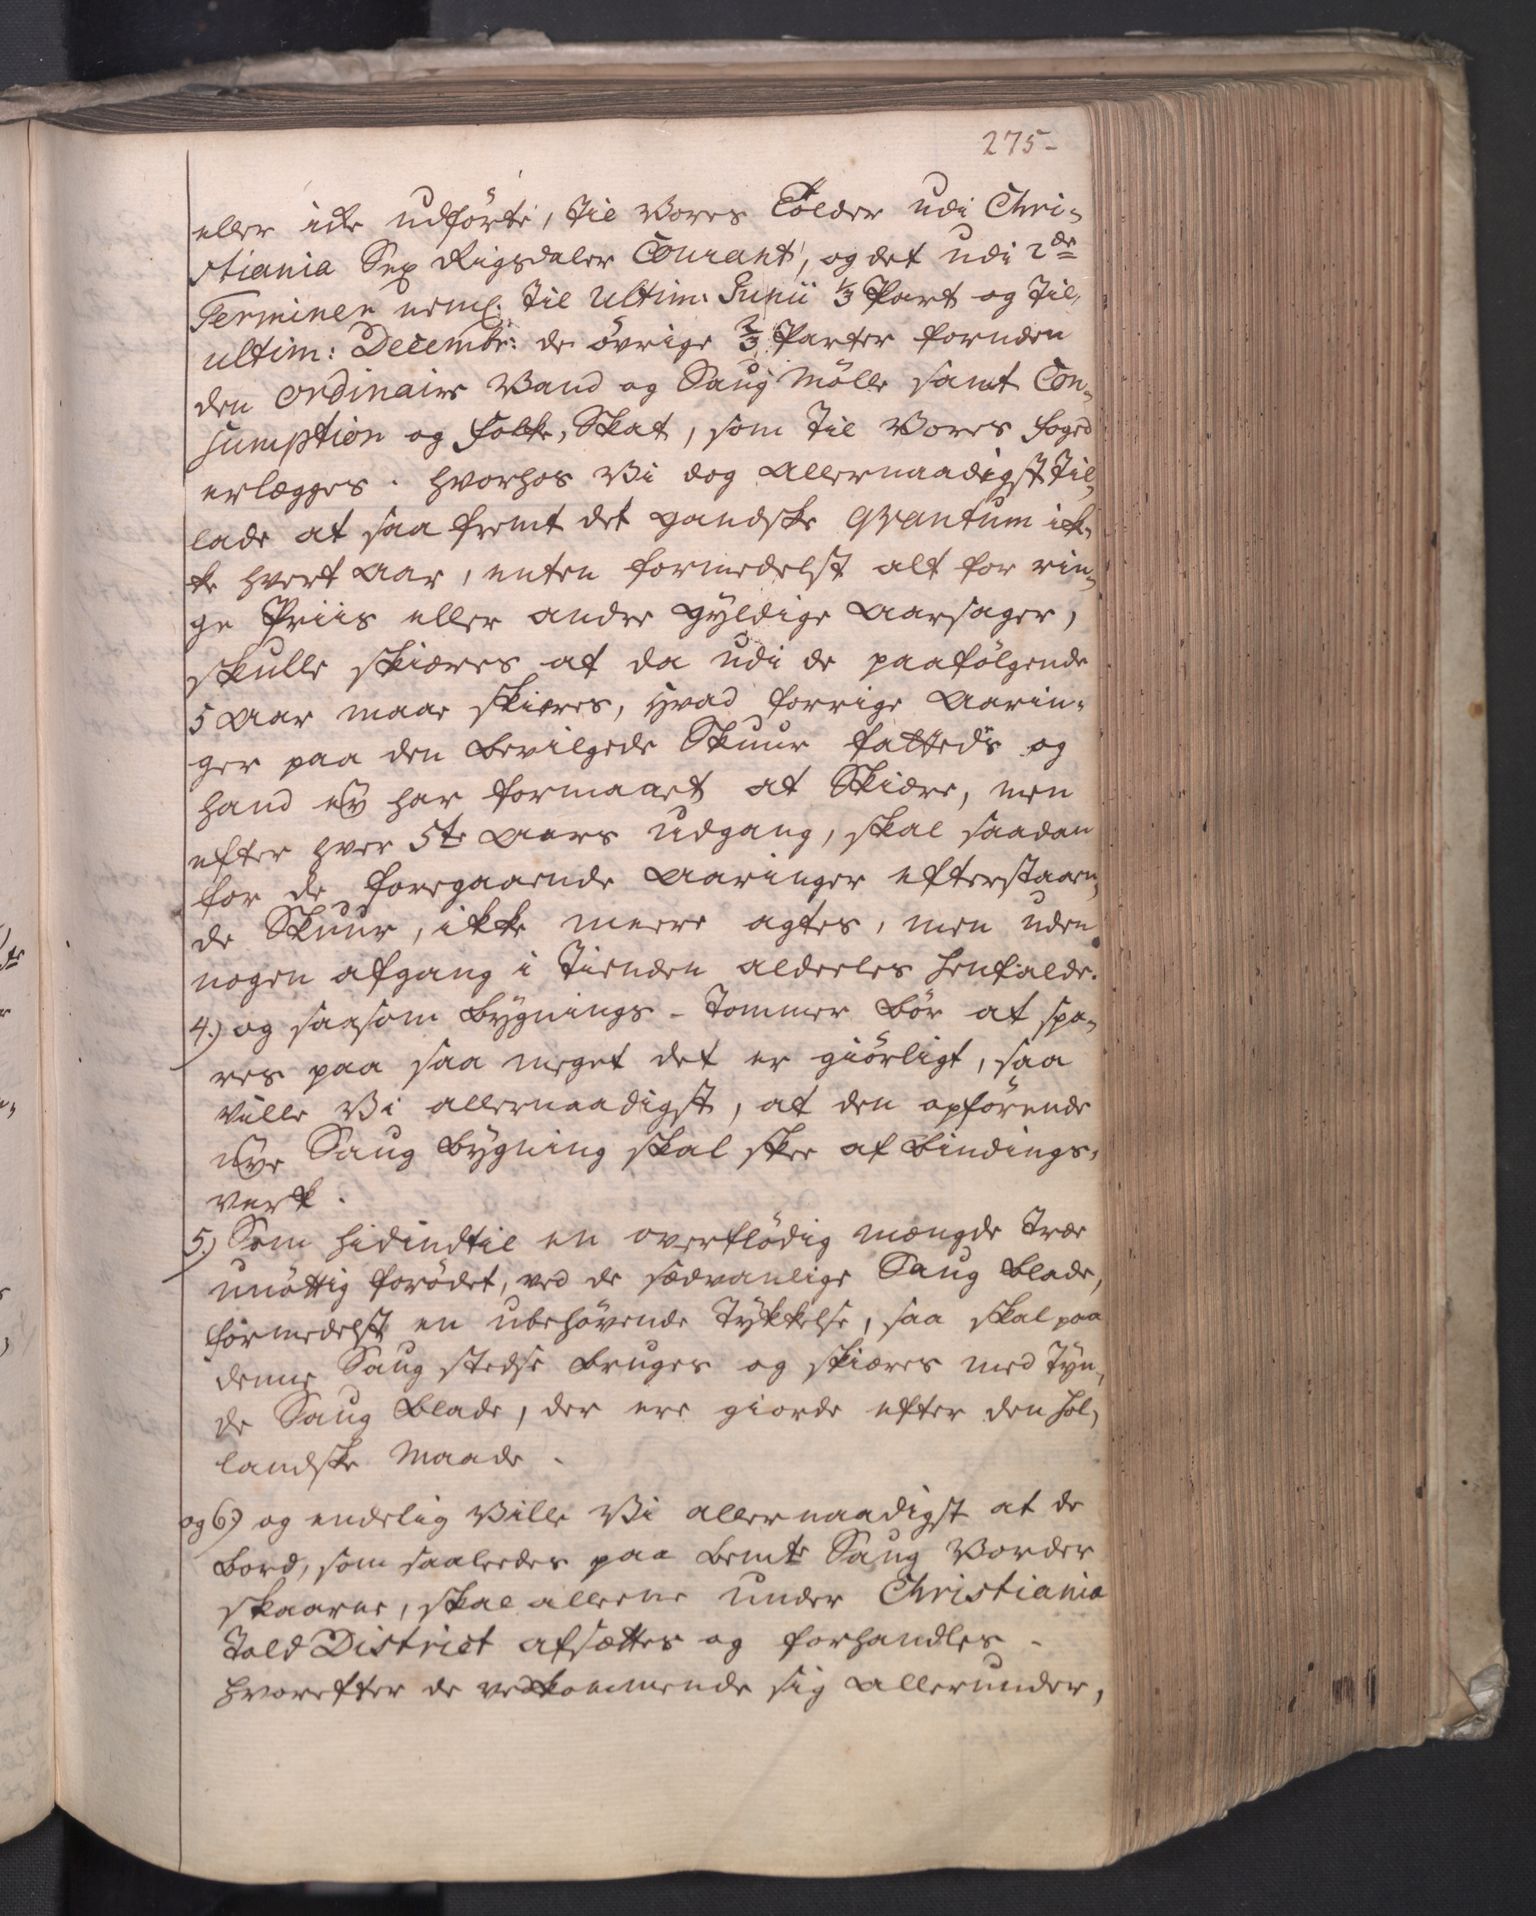 275-
eller icke udförte, til Vores Tolder udi Chri-
stiania Sex Rigsdaler Courant, og det udi 2de
Terminer neml. til Ultim: Junii 1/3 Part og til
ultim: Decembr: de övrige 2/3 Parter foruden
den ordinaire Vand og Saug Mölle samt Con-
sumption og Folke, Skat, som til Vores Foged
erlægges. Hvorhos Vi dog Allernaadigst til-
lade at saa fremt det gandske Qvantum ik-
ke hvert Aar, enten formedelst alt for rin-
ge Priis eller andre gyldige Aarsager,
skulle skiæres at da udi de paafölgende
5 Aar maae skieres, hvad forrige Aarin-
ger paa den bevilgede Skuur fattedis og
hand ey har formaaet at Skiære, men
efter hver 5te Aars udgang, skal saadan
for de foregaaende Aaringer efterstaaen-
de Skuur, ikke meere agtes, men uden
nogen afgang i Tienden alderles henfalde.
4.) og saasom Bygnings-Tommer bör at spa-
res paa saa meget det er giörligt, saa
Ville Vi allernaadigst, at den opförende
nye Saug bygning skal skee af Bindings-
verk.
5.) Som hidindtil en overflödig mængde Træe
unöttig forödet, ved de sædvanlige Saug blade,
formedelst en ubehövende tykkelse, saa skal paa
denne Saug stedse bruges og skiæres med tyn-
de Saug blade, der ere giorde efter den Hol-
landske Maade.
og 6.) og endelig Ville Vi allernaadigst at de
Bord, som saaledes paa bemte Saug Vorder
skaarne, skal alleene under Christiania
Told District afsættes og forhandles.
Hvorefter de vedkommende sig allerunder-